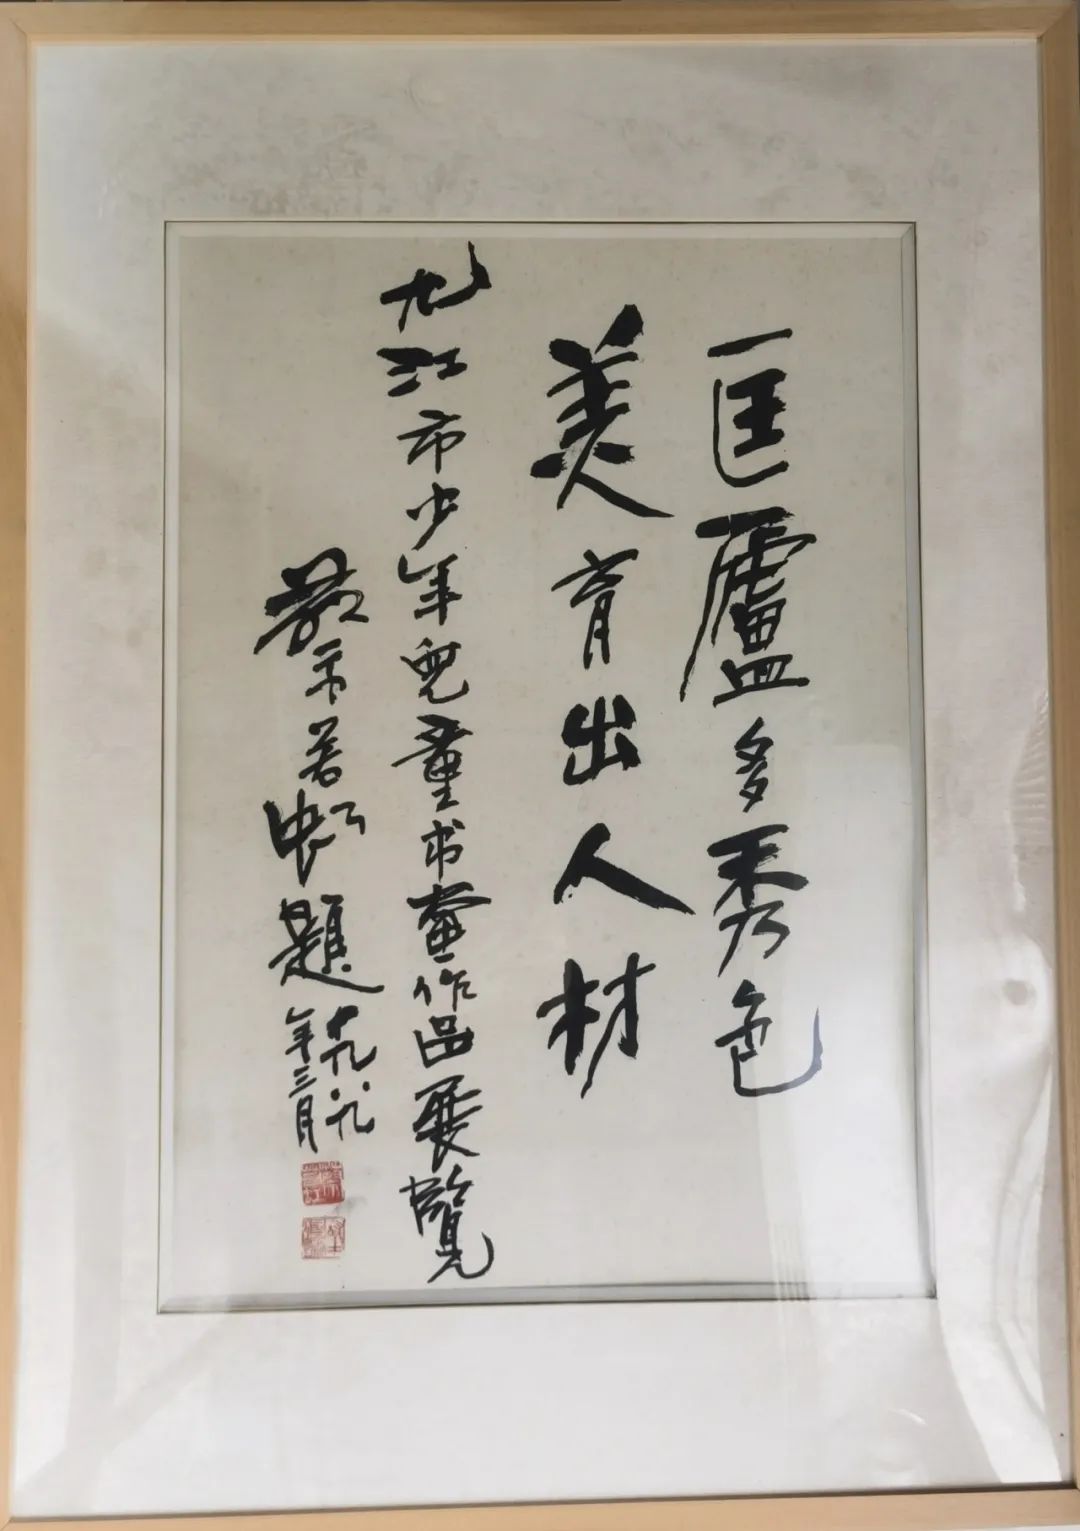 匡廬多秀色
美育出人材
九江市少年兒童书畫作品展覽
蔡若虹題
一九八九
年三月